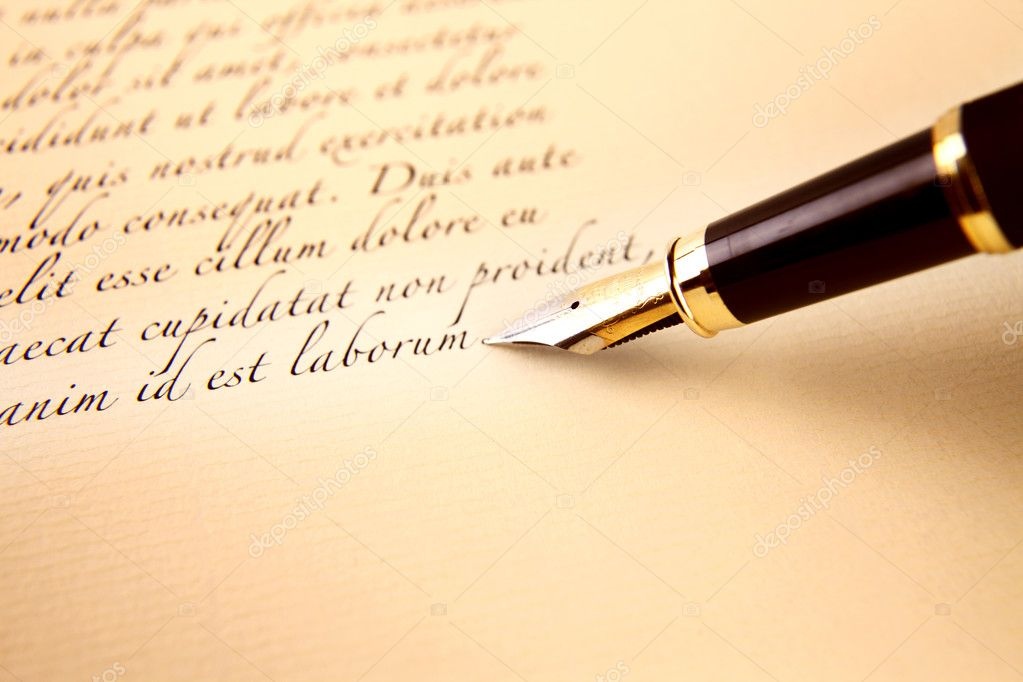 nulla
in culpa qui officia
dolor sit amet, consectetur
cididunt ut labore et dolore
, quis nostrud exercitation
modo consequat. Duis aute
elit esse cillum dolore eu
aecat cupidatat non proident,
anim id est laborum.
depositphotos